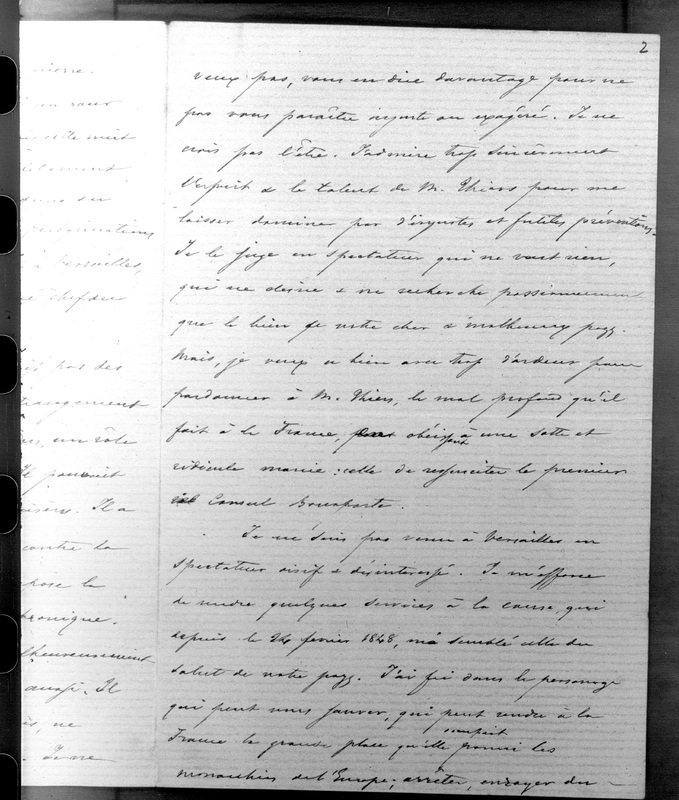 2
veux pas, vous en dire davantage pour ne
pas vous paraître injuste ou exagéré. Je ne
crois pas l'être. J'admire trop sincèrement
l'esprit & le talent de M. Thiers pour me
laisser dominer par d'injustes et futiles préventions.
Je le juge en spectateur qui ne veut rien,
qui ne désire & ne recherche passionnément
que le bien de notre cher & malheureux pays.
Mais, je veux ce bien avec trop d'ardeur pour
pardonner à M. Thiers, le mal profond qu'il
fait à la France, obéissant à une sotte et
ridicule manie : celle de ressusciter le premier
Consul Bonaparte.
Je ne suis pas venu à Versailles en
spectateur oisif & désintéressé. Je m'efforce
de rendre quelques services à la cause, qui
depuis le 24 fevrier 1848, m'a semblé celle du
salut de notre pays. J'ai foi dans le personnage
qui peut nous sauver, qui peut rendre à la
France la grande place qu'elle occupait parmi les
monarchies de l'Europe, arrêter, enrayer du
ierre.
nuit
ment
inations
à Versailles,
chef du
pas des
rangement
un rôle
Il pouvait
Il a
contre la
pose le
ronique.
lheureusement
aussi. Il
ne
Je ne